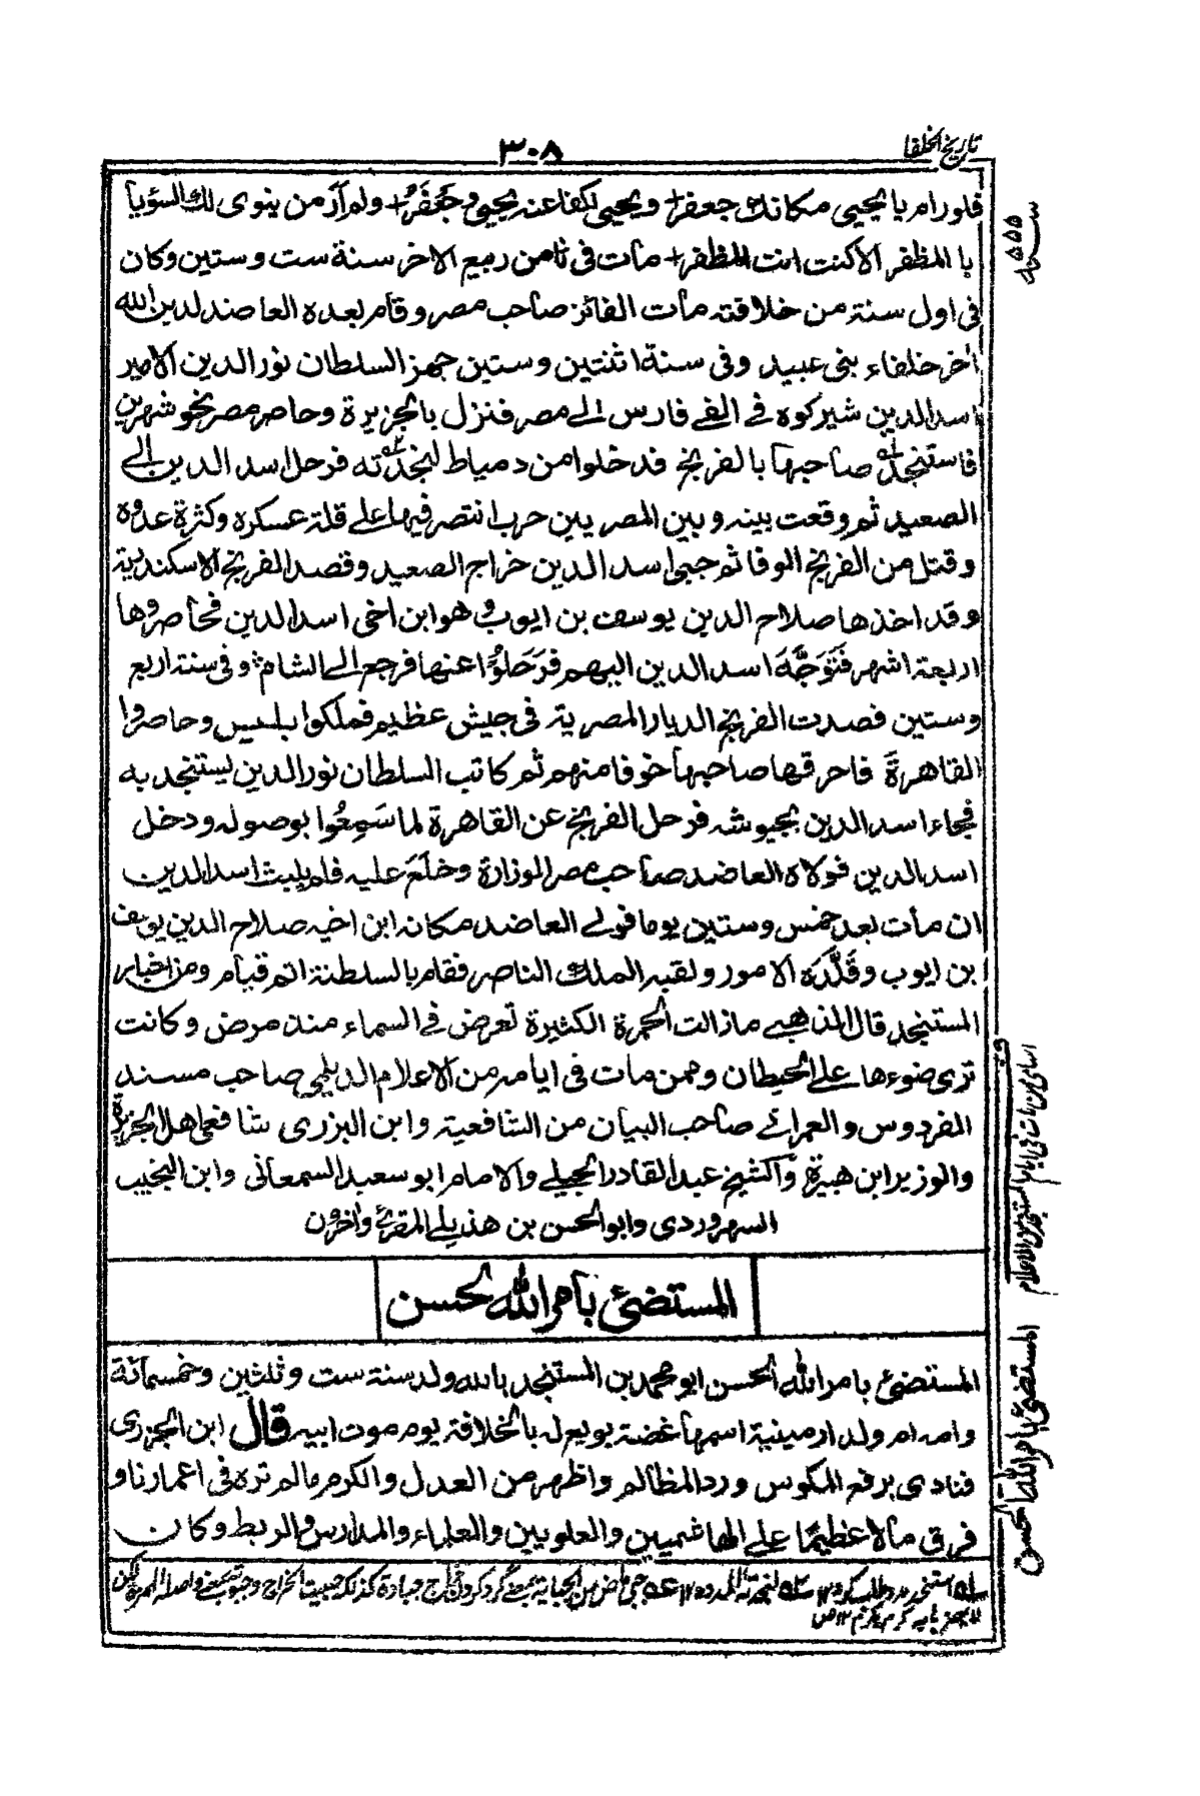 تاريخ الخلفا
٣٠٨
فلورام يا يحيى مكانك جعفر + ويحيى لكفا عنه يحيى وجَعْفَرُ + ولم أرَ من ينوى لك السؤيا
با المظفر الا كنت انت المظفر + مات فى ثامن ربيع الاخر سنة ست وستين وكان
فى اول سنة من خلافته مات الفائز صاحب مصر وقام بعده العاضد لدين الله
اٰخر خلفاء بنى عبيد وفى سنة اثنتين وستين جهز السلطان نور الدين الامير
اسد الدين شيركوه فے الفے فارس الے مصر فنزل بالجزيرة وحاصر مصر نحو شهرين
فاستنجد صاحبها بالفرنج فدخلوا من دمياط لنجدته فرحل اسد الدين الے
الصعيد ثم وقعت بينه وبين المصريين حرب انتصر فيها علے قلة عسكره وكثرة عدوه
وقتل من الفرنج الوفا ثم جبى اسد الدين خراج الصعيد وقصد الفرنج الاسكندرية
وقد اخذها صلاح الدين يوسف بن ايوب وهو ابن اخى اسد الدين فحاصروها
اربعة اشهر فَتَوَجَّهَ اسد الدين اليهم فرَحَلوُا عنها فرجع الے الشام وفى سنة اربع
وستين قصدت الفرنج الديار المصرية فى جيش عظيم فملكوا بلبيس وحاصروا
القاهرةَ فاحرقها صاحبها خوفا منهم ثم كاتب السلطان نور الدين يستنجد به
فجاء اسد الدين بجيوشه فرحل الفرنج عن القاهرة لما سَمِعُوا بوصوله ودخل
اسد الدين فولاه العاضد صاحب مصر الوزارة وخلَعَ عليه فلم يلبث اسد الدين
ان مات بعد خمس وستين يوما فولے العاضد مكانه ابن اخيه صلاح الدين يوسف
بن ايوب وقَلَّدَه الامور ولقبه الملك الناصر فقام بالسلطنة اتم قيام ومن اخبار
المستنجد قال الذهبے ما زالت الحمرة الكثيرة تعرض فے السماء منذ مرض وكانت
ترى ضوءها علے الحيطان وممن مات فى ايامه من الاعلام الديلمى صاحب مسند
الفردوس والعمرانے صاحب البيان من الشافعية وابن البزرى شافعى اهل الجزيرة
والوزير ابن هبيرة والشيخ عبد القادر الجيلے والامام ابو سعيد السمعانى وابن النجيب
السهروردى وابو الحسن بن هذيل المقرئ واٰخرون
المستضئ بامر الله الحسن
المستضئ بامر الله الحسن ابو محمد بن المستنجد بالله ولد سنة ست وثلثين وخمسمائة
وامه ام ولد ارمينية اسمها غضة بويع له بالخلافة يوم موت ابيه قال ابن الجوزى
فنادى برفع المكوس ورد المظالم واظهر من العدل والكرم ما لم نره فى اعمارنا و
فرق مالا عظيما علے الهاشميين والعلويين والعلماء والمدارس والربط وكان
سنه ٥٥٥
اسامى من مات فى ايام المستنجد من الاعلام
المستضئ بامر الله الحسن